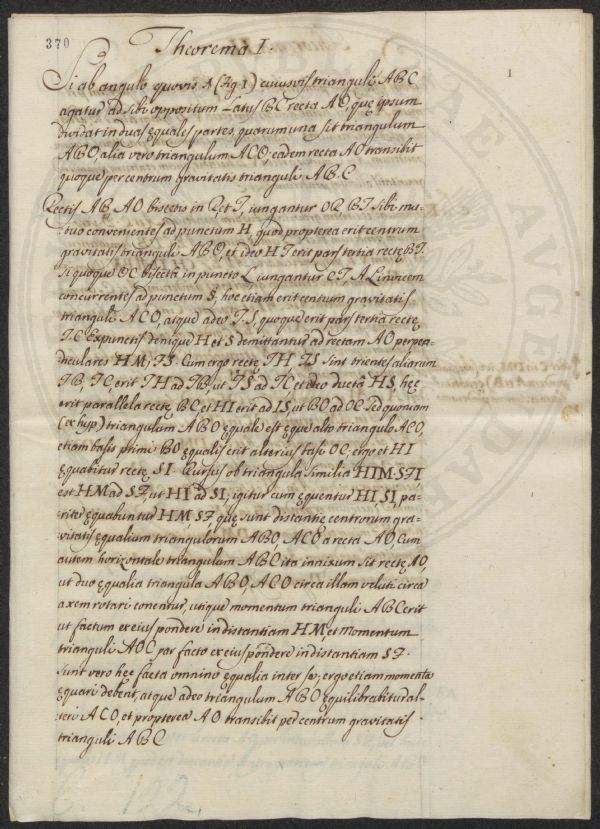 370
1
Theorema I.
Si ab angulo quovis A (Fig 1) cuiusvis trianguli ABC
agatur ad sibi oppositum Latus BC recta AO, quę ipsum
dividat in duas ęquales partes, quarum una sit triangulum
ABO, alia vero triangulum ACO, eadem recta AO transibit
quoque per centrum gravitatis trianguli ABC
Rectis AB AO bisectis in Q et T, iungantur OQ BT sibi mu=
tuo convenientes ad punctum H, quod propterea erit centrum
gravitatis trianguli ABO, et ideo HT erit pars tertia rectę BT.
Si quoque OC bisecta in puncto L iungantur CT, AL invicem
concurrentes ad punctum S, hoc etiam erit centrum gravitatis
trianguli ACO, atque adeo TS, quoque erit pars tertia rectę
TC Ex punctis denique H et S demittantur ad rectam AO perpen=
diculares HM, SF. Cum ergo rectę TH, TS sint trientes aliarum
TB, TC, erit TH ad TB, ut TS ad TC et ideo ducta HS, hęc
erit parallela rectę BC, et HI erit ad IS, ut BO ad OC Sed quoniam
(ex hyp) triangulum ABO ęquale est ęque alto triangulo ACO,
etiam basis primi BO ęqualis erit alterius basi OC, ergo et HI
ęquabitur rectę SI. Rursus ob triangula similia HIM, SFI
est HM ad SF, ut HI ad SI, igitur cum ęquentur HI, SI, pa=
riter ęquabuntur HM, SF, quę sunt distantię centrorum gra=
vitatis ęqualium triangulorum ABO, ACO a recta AO, Cum
autem horizontale triangulum ABC ita innixum sit rectę AO,
ut duo ęqualia triangula ABO, ACO circa illam veluti circa
axem rotari conentur, utique momentum trianguli ABC erit
ut factum ex eius pondere in distantiam HM, et momentum
trianguli AOC par facto ex eius pondere in distantiam SF.
Sunt vero hęc facta omnino ęqualia inter se, ergo etiam momenta
ęquari debent, atque adeo triangulum ABO ęquilibrabitur al=
teri ACO, et propterea AO transibit per centrum gravitatis
trianguli ABC